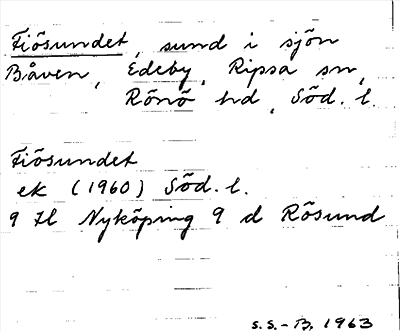 Fiösundet, sund i sjön
Båven, Edeby, Ripsa sn,
Rönö hd, Söd. l.
Fiösundet
ek (1960) Söd. l.
9 H Nyköping 9 d Rösund
S.S.-B. 1963